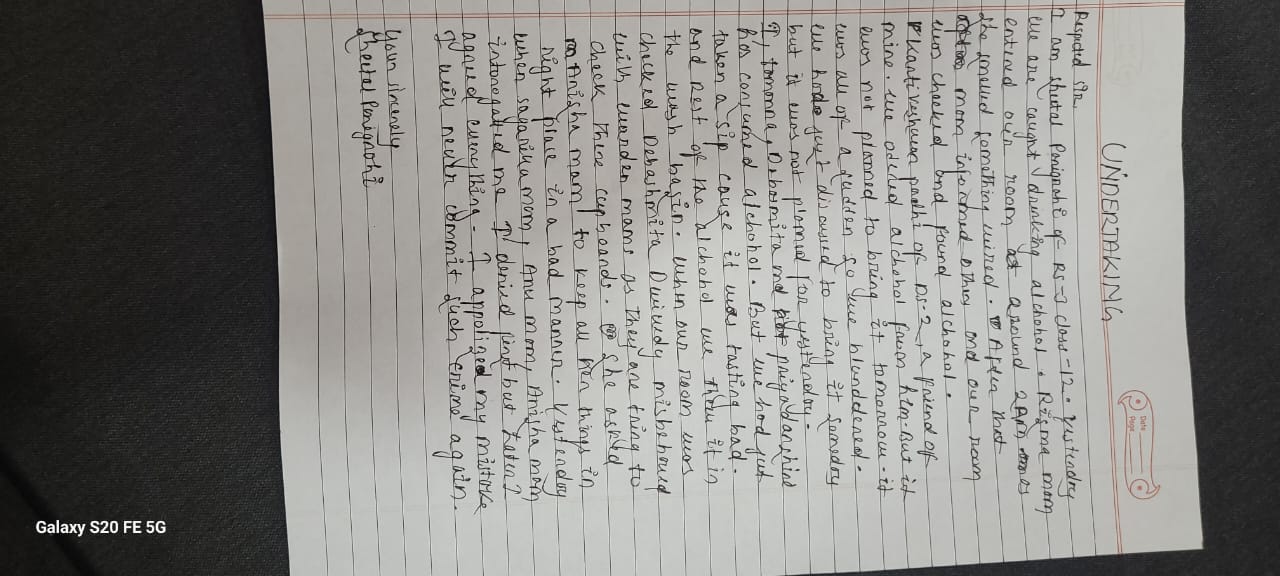 UNDERTAKING
Date
Page
Respeted Sir
I am sheetal Panigrahi of RS-3 class-12. Yestenday
we are caught drinking alchohol. Rizma mam
entired our room at around 2 Am
she smelled something wired. After that
mam informed others and our room
was checked and found alchohol.
Kantiveshwan padhi of DS-2, a friend of
mine. we odded alchohol from him. But it
was not planed to bring it tomorrow. it
was all of a sudden so we blundered.
we had just discussed to bring it someday
but it was not planed for yestenday.
I, tomonna, Debosmita and priyadarshini
has consumed alchohol. But we had just
taken a sip cause it was tasting bad.
and rest of the alchohol we thow it in
the wash bazin. when our room was
checked Debashmita Dwivedy misbehaved
with warden mams as they are tring to
check there cupboards. She asked
Anisha mam to keep all her things in
right place in a bad manner. Yestenday
when sagarika mam, Anu mam, Anisha mam
intonogated me I denied first but laten I
agreed everything. I appoliged my mistake
I will never commit such crime again.
Yours sincenely
Sheetal Panigrahi
Galaxy S20 FE 5G